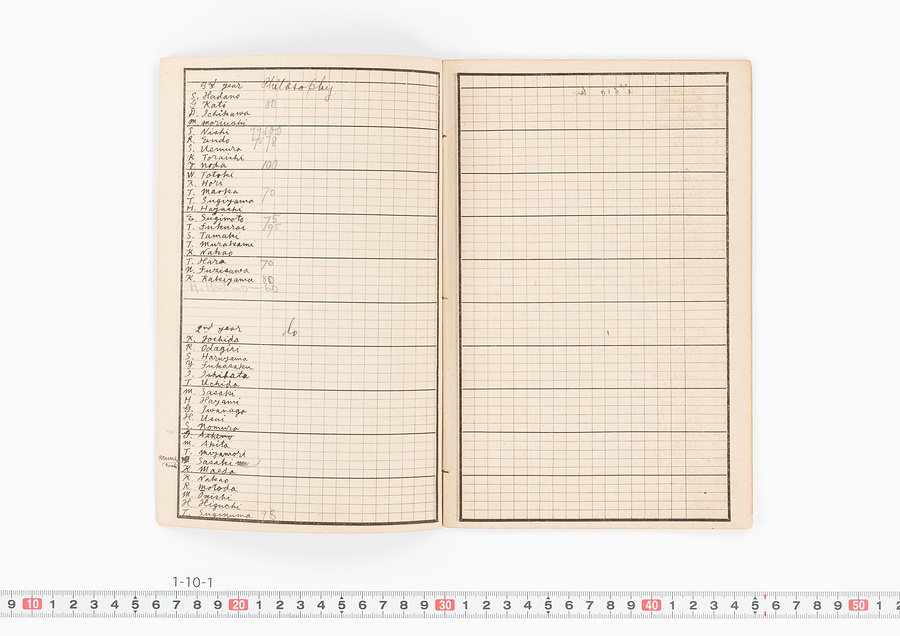 3rd year Philosophy
S. Hadano
G. Katō 80
D. Ichikawa
M. Moriuchi
S. Nishi
R. Endo 78
S. Uemura
K. Toraishi
T. Noda 100
W. Totoki
K. Hori
T. Maoka 70
T. Sugiyama
H. Hayashi
G. Sugimoto 75
T. Fukurai 95
S. Tamaki
T. Murakami
K. Nakao
T. Hara 70
N. Fuzisawa
K. Kakeiyama 80
60
2nd year do
K. Yoshida
R. Odagiri
S. Haruyama
Y. Fukasaku
I. Ishibata
T. Uchida
M. Sasaki
H. Hayami
G. Iwanaga
H. Usui
S. Nomura
M. Akita
T. Mizamori
Sasaki
K. Maeda
K. Nakao
R. Motoda
M. Ōnishi
H. Higuchi
T. Suginuma 98
1-10-1
9 10 1 2 3 4 5 6 7 8 9 20 1 2 3 4 5 6 7 8 9 30 1 2 3 4 5 6 7 8 9 40 1 2 3 4 5 6 7 8 9 50 1